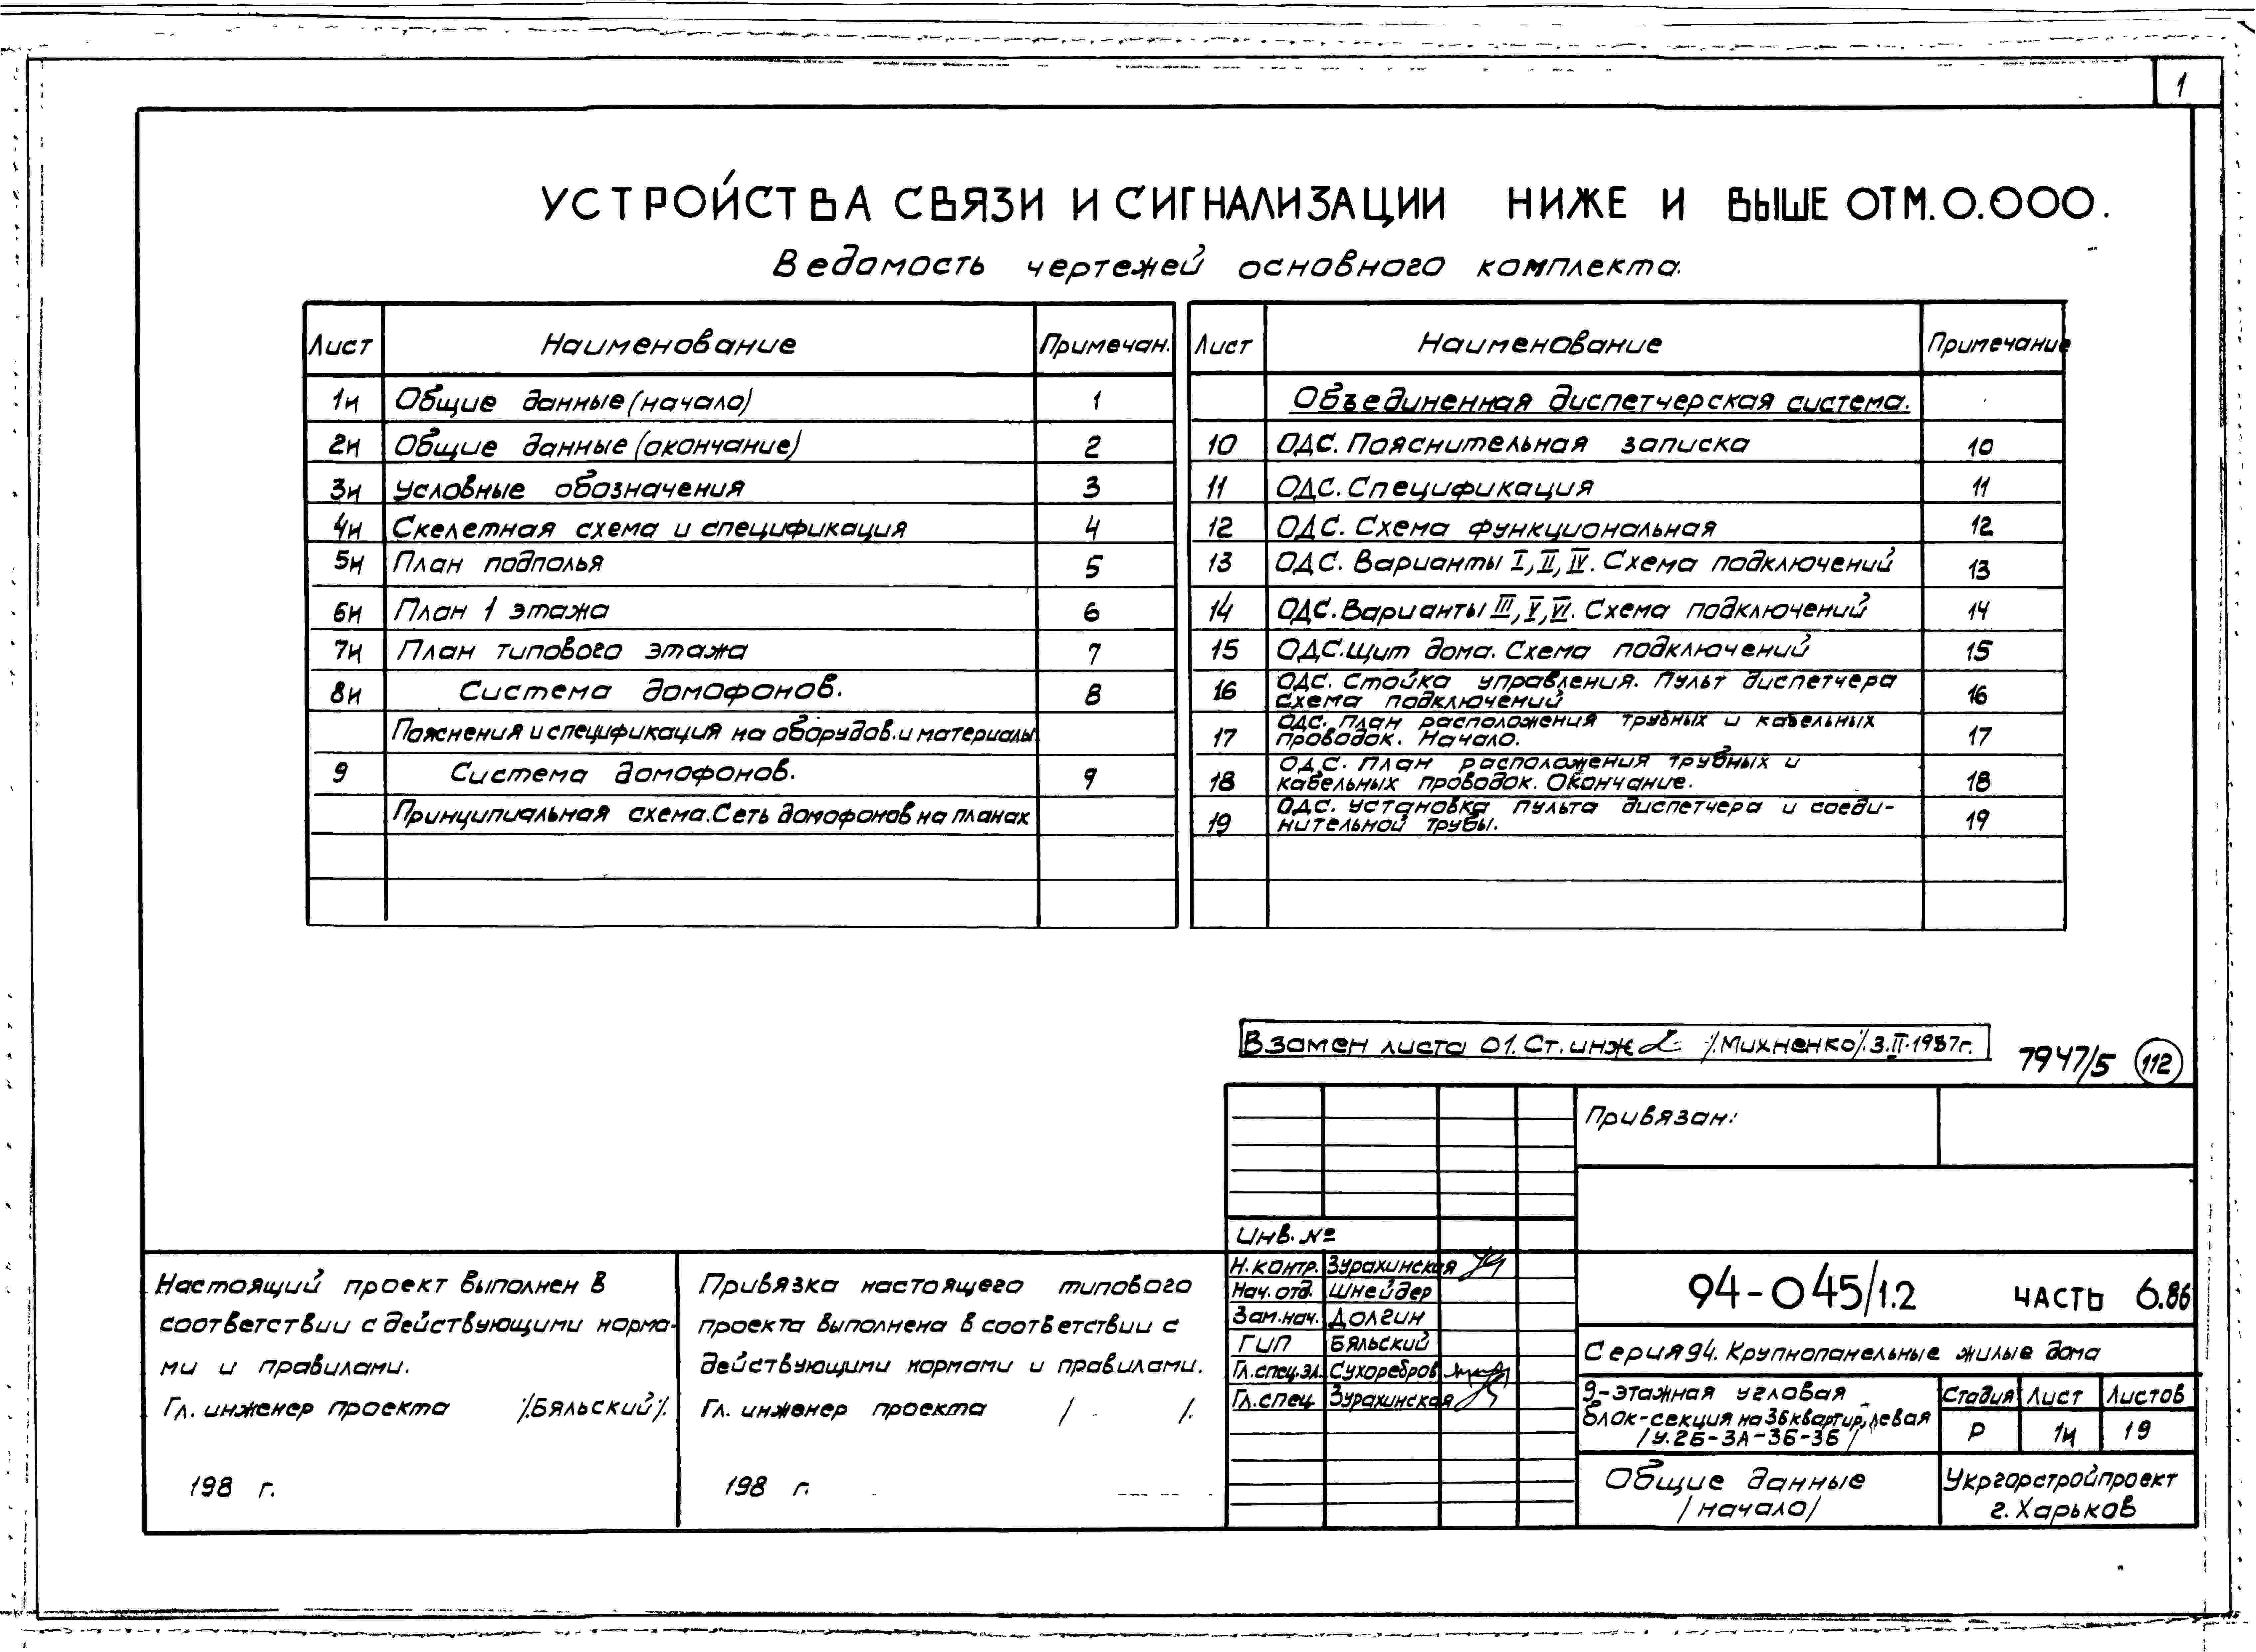 1
УСТРОЙСТВА СВЯЗИ И СИГНАЛИЗАЦИИ НИЖЕ И ВЫШЕ ОТМ. 0.000.
Ведомость чертежей основного комплекта.
Лист Наименование Примечан.
1и Общие данные (начало) 1
2и Общие данные (окончание) 2
3и Условные обозначения 3
4и Скелетная схема и спецификация 4
5и План подполья 5
6и План 1 этажа 6
7и План типового этажа 7
8и Система домофонов. 8
Пояснения и спецификация на оборудов. и материалы
9 Система домофонов. 9
Принципиальная схема. Сеть домофонов на планах
Лист Наименование Примечание
Объединенная диспетчерская система.
10 ОДС. Пояснительная записка 10
11 ОДС. Спецификация 11
12 ОДС. Схема функциональная 12
13 ОДС. Варианты I, II, IV. Схема подключений 13
14 ОДС. Варианты III, V, VI. Схема подключений 14
15 ОДС. Щит дома. Схема подключений 15
16 ОДС. Стойка управления. Пульт диспетчера 16
схема подключений
17 ОДС. План расположения трубных и кабельных 17
проводок. Начало.
18 ОДС. План расположения трубных и 18
кабельных проводок. Окончание.
19 ОДС. Установка пульта диспетчера и соеди- 19
нительной трубы.
Взамен листа 01. Ст. инж /Михненко/. 3.II.1987г.
7947/5 112
Привязан:
Инв. №
Н. контр. Зурахинская
Нач. отд. Шнейдер
Зам. нач. Долгин
ГИП Бяльский
Гл. спец. эл. Сухоребров
Гл. спец. Зурахинская
94-045/1.2 ЧАСТЬ 6.86
Серия 94. Крупнопанельные жилые дома
9-этажная угловая
блок-секция на 36 квартир, левая
/У.2Б-3А-3Б-3Б/
Стадия Лист Листов
Р 1и 19
Общие данные
/начало/
Укргорстройпроект
г. Харьков
Настоящий проект выполнен в
соответствии с действующими норма-
ми и правилами.
Гл. инженер проекта /.Бяльский/.
198 г.
Привязка настоящего типового
проекта выполнена в соответствии с
действующими нормами и правилами.
Гл. инженер проекта / . /.
198 г.